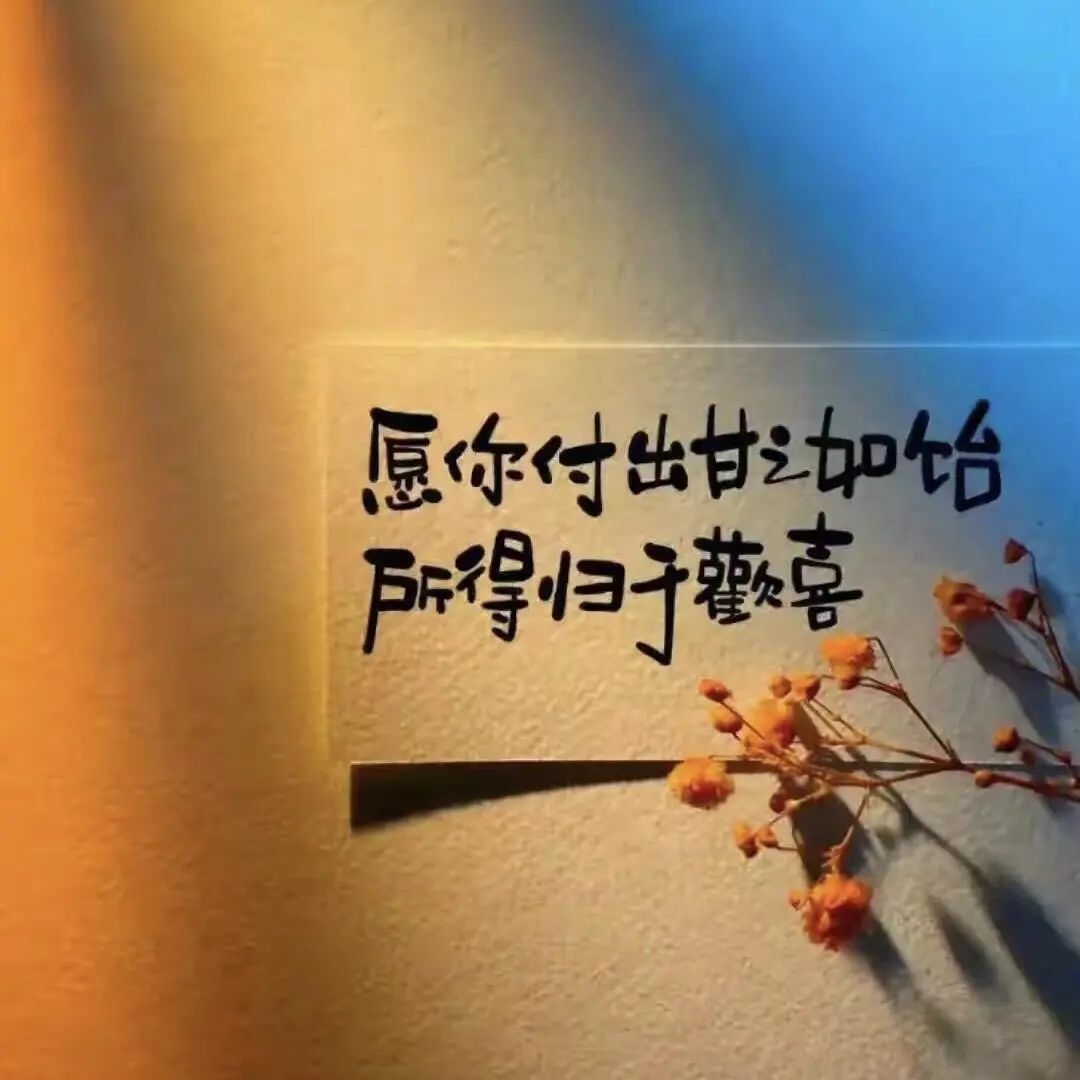 愿你付出甘之如饴
所得归于歡喜